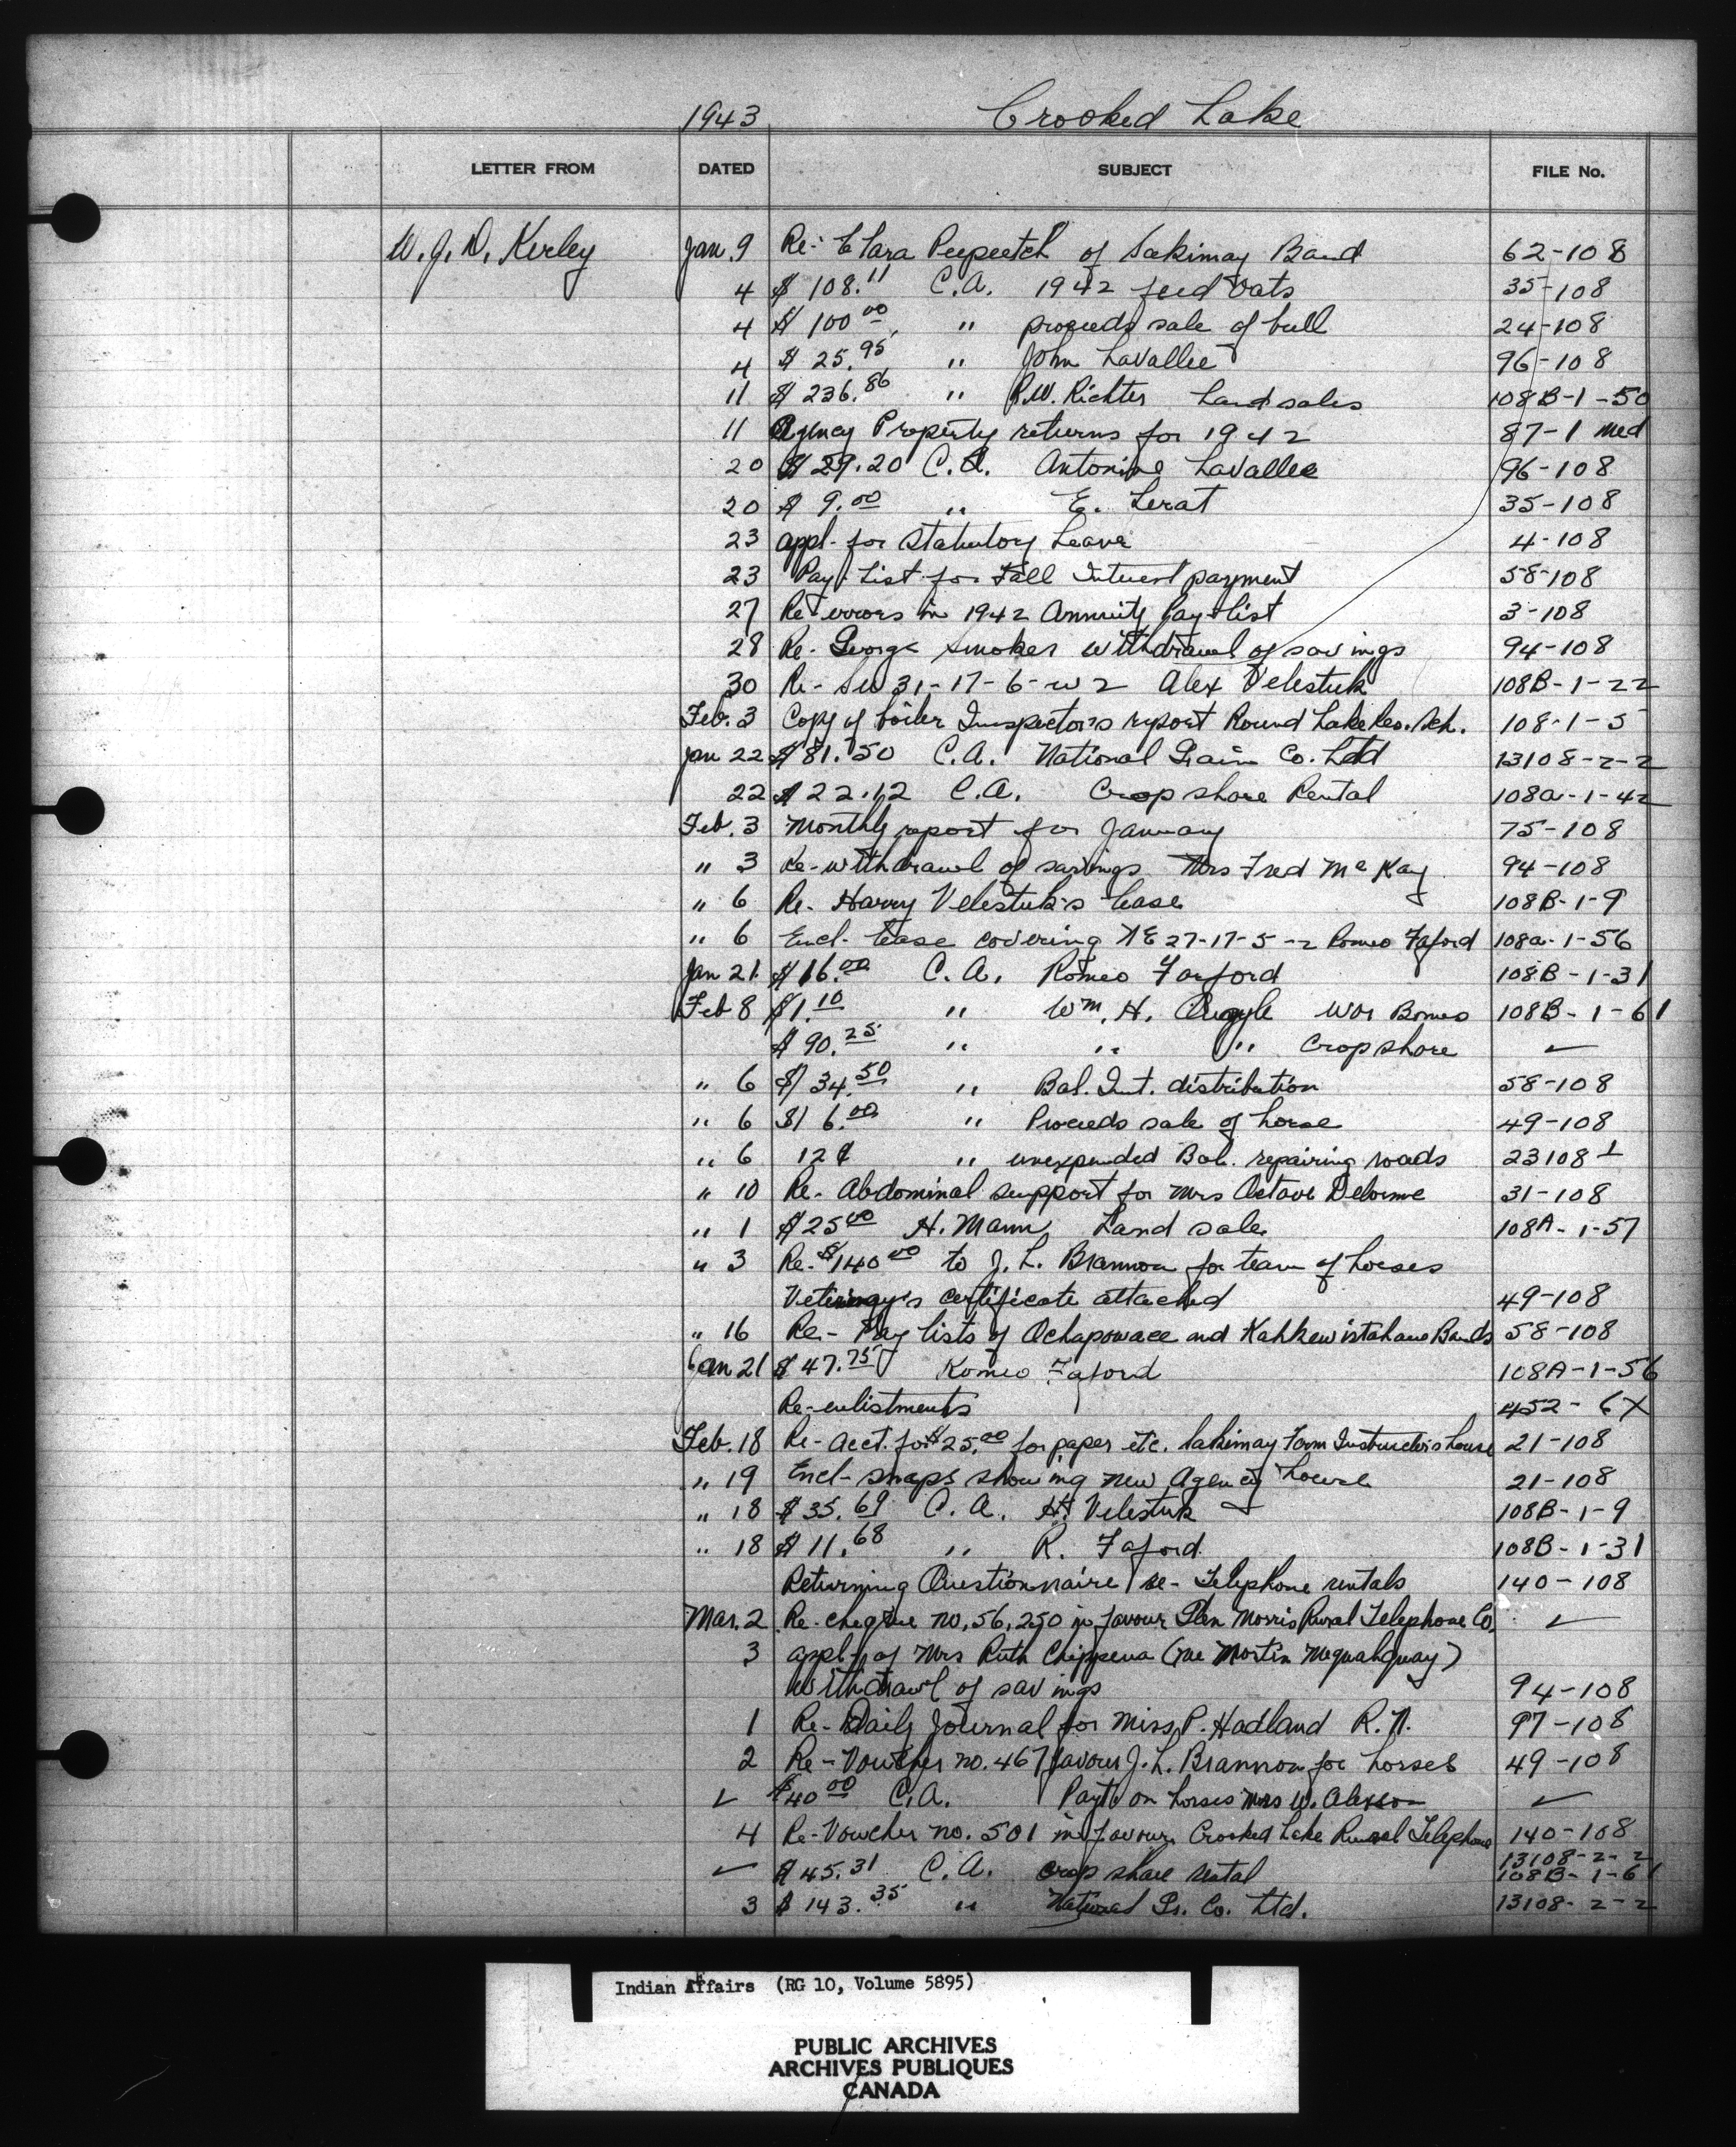 1943 Crooked Lake
LETTER FROM DATED SUBJECT FILE No.
W. J. D. Kerley Jan. 9 Re- Clara Peepeetch of Sakimay Band 62-108
4 $108.11 C.A. 1942 feed oats 35-108
4 $100.00 " proceeds sale of bull 24-108
4 $25.95 " John LaVallee 96-108
11 $236.86 " R.W. Richter Land sales 108B-1-50
11 Agency Property returns for 1942 87-1 med
20 $29.20 C.A. Antonine LaVallee 96-108
20 $9.00 " E. Lerat 35-108
23 appl- for Statutory Leave 4-108
23 Pay-List for Fall Interest payment 58-108
27 Re errors in 1942 Annuity Pay-list 3-108
28 Re- George Smoker withdrawl of savings 94-108
30 Re- SW 31-17-6-w2 Alex Velestuk 108B-1-22
Feb. 3 Copy of boiler Inspector's report Round Lake Res. Sch. 108-1-5
Jan 22 $81.50 C.A. National Grain Co. Ltd 13108-2-2
22 $22.12 C.A. Crop share Rental 108a-1-42
Feb. 3 Monthly report for January 75-108
" 3 Re-withdrawl of savings Mrs Fred McKay 94-108
" 6 Re- Harry Velestuk's lease 108B-1-9
" 6 Encl- lease covering NE 27-17-5-2 Romeo Faford 108a-1-56
Jan 21 $16.00 C.A. Romeo Farford 108B-1-31
Feb 8 $1.10 " Wm. H. Argyle War Bonus 108B-1-61
$90.25 " " " Crop share ✓
" 6 $34.50 " Bal. Int. distribution 58-108
" 6 $16.00 " Proceeds sale of horse 49-108
" 6 12¢ " unexpended Bal. repairing roads 23108-1
" 10 Re- Abdominal support for Mrs Octave Delorme 31-108
" 1 $25.00 H. Mann Land sale 108A-1-57
" 3 Re- $140.00 to J. L. Brannon for team of horses
Veterinary's certificate attached 49-108
" 16 Re- Pay lists of Ochapowace and Kahkewistahaw Bands 58-108
Jan 21 $47.75 Romeo Faford 108A-1-56
Re-enlistments 452-6X
Feb. 18 Re- acct. for $25.00 for paper etc. Sakimay Farm Instructor's house 21-108
" 19 Encl- snaps showing new Agency house 21-108
" 18 $35.69 C.A. H. Velestuk 108B-1-9
" 18 $11.68 " R. Faford 108B-1-31
Returning Questionnaire re- Telephone rentals 140-108
Mar. 2 Re-cheque no. 56,250 in favour Glen Morris Rural Telephone Co. ✓
3 appl- of Mrs Ruth Chippewa (nee Martin )
withdrawl of savings 94-108
1 Re- Daily Journal for Miss P. Hadland R.N. 97-108
2 Re- Voucher no. 467 favour J. L. Brannon for horses 49-108
✓ $40.00 C.A. Payt on horses Mrs W. ✓
4 Re-Voucher no. 501 in favour Crooked Lake Rural Telephone 140-108
13108-2-2
✓ $45.31 C.A. crop share rental 108B-1-61
3 $143.35 " National Gr. Co. Ltd. 13108-2-2
Indian Affairs (RG 10, Volume 5895)
PUBLIC ARCHIVES
ARCHIVES PUBLIQUES
CANADA